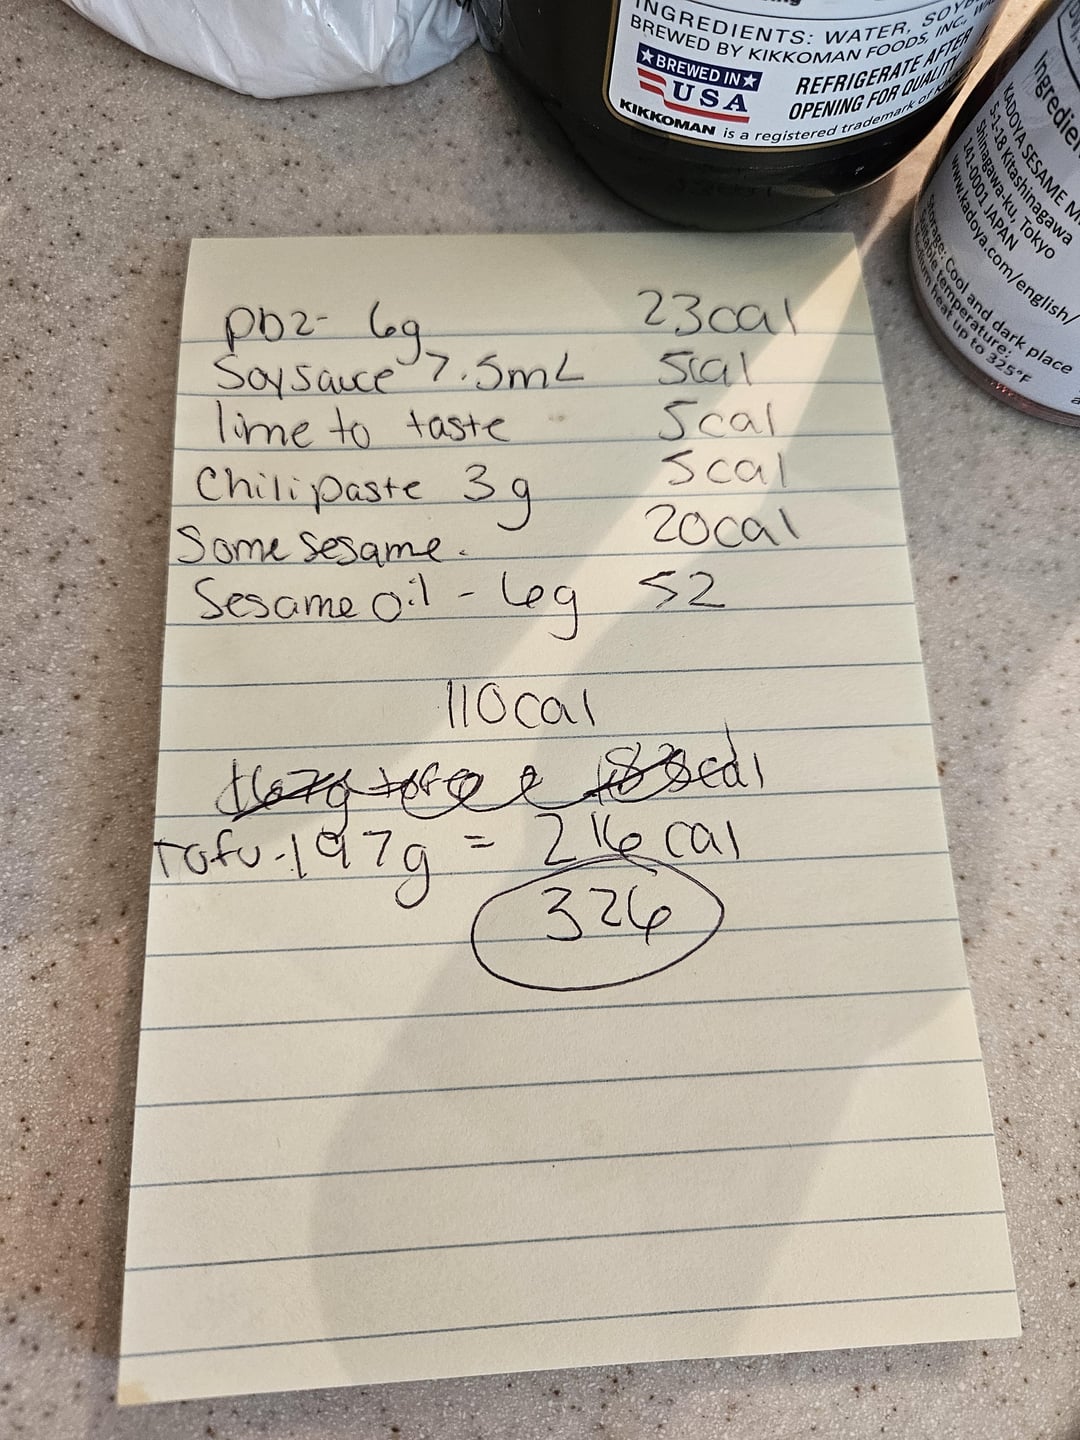 INGREDIENTS: WATER, SOYB
BREWED BY KIKKOMAN FOODS, INC., WA
★BREWED IN★
USA
REFRIGERATE AFTER
OPENING FOR QUALITY
KIKKOMAN is a registered trademark of
Ingredien
KADOYA SESAME M
5-1-18 Kitashinagawa
Shinagawa-ku, Tokyo
141-0001 JAPAN
www.kadoya.com/english/
Storage: Cool and dark place
Suitable temperature:
Medium heat up to 325°F
pb2- 6g 23cal
Soy sauce 7.5mL 5cal
lime to taste 5cal
Chili paste 3g 5cal
Some sesame. 20cal
Sesame oil - 6g 52
110cal
Tofu-197g = 216 cal
326